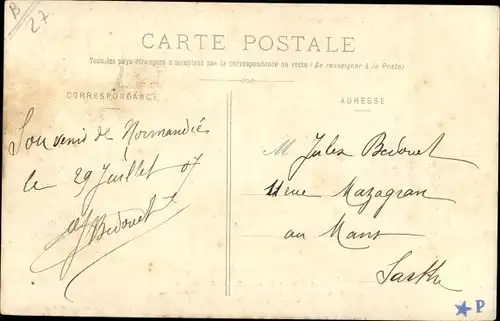 B
27
CARTE POSTALE
Tous les pays étrangers n'acceptent pas la correspondance au recto (Se renseigner à la Poste)
CORRESPONDANCE
ADRESSE
Souvenir de Normandie
le 29 Juillet 07
Bedouet
M Jules Bedouet
11 rue Mazagran
au Mans
Sarthe
P